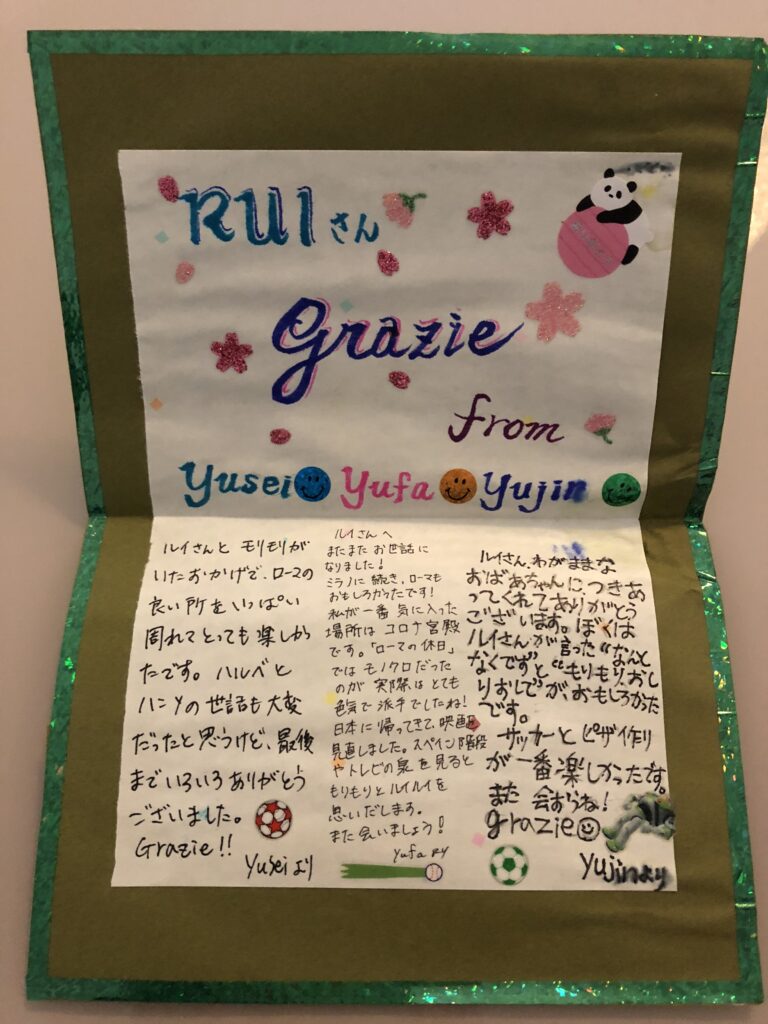 RUIさん
Grazie
from
Yusei Yufa Yujin
ルイさんと モリモリが
いたおかげで、ローマの
良い所をいっぱい
周れてとっても楽しかっ
たです。ハルベと
ハンメの世話も大変
だったと思うけど、最後
までいろいろありがとう
ございました。
Grazie!!
Yuseiより
ルイさんへ
またまたお世話に
なりました!
ミラノに続き、ローマも
おもしろかったです!
私が一番気に入った
場所はコロナ宮殿
です。「ローマの休日」
ではモノクロだった
のが実際はとても
色気で派手でしたね!
日本に帰ってきて、映画
見直しました。スペイン階段
やトレビの泉を見ると
もりもりとルイルイを
思いだします。
また会いましょう!
Yufaより
ルイさん、わがままな
おばあちゃんに、つきあ
ってくれてありがとう
ございます。ぼくは
ルイさんが言った“なんと
なくです”と“もりもり、おし
りおしで”が、おもしろかった
です。
サッカーとピザ作り
が一番楽しかったです。
また 会おうね!
grazie
Yujinより